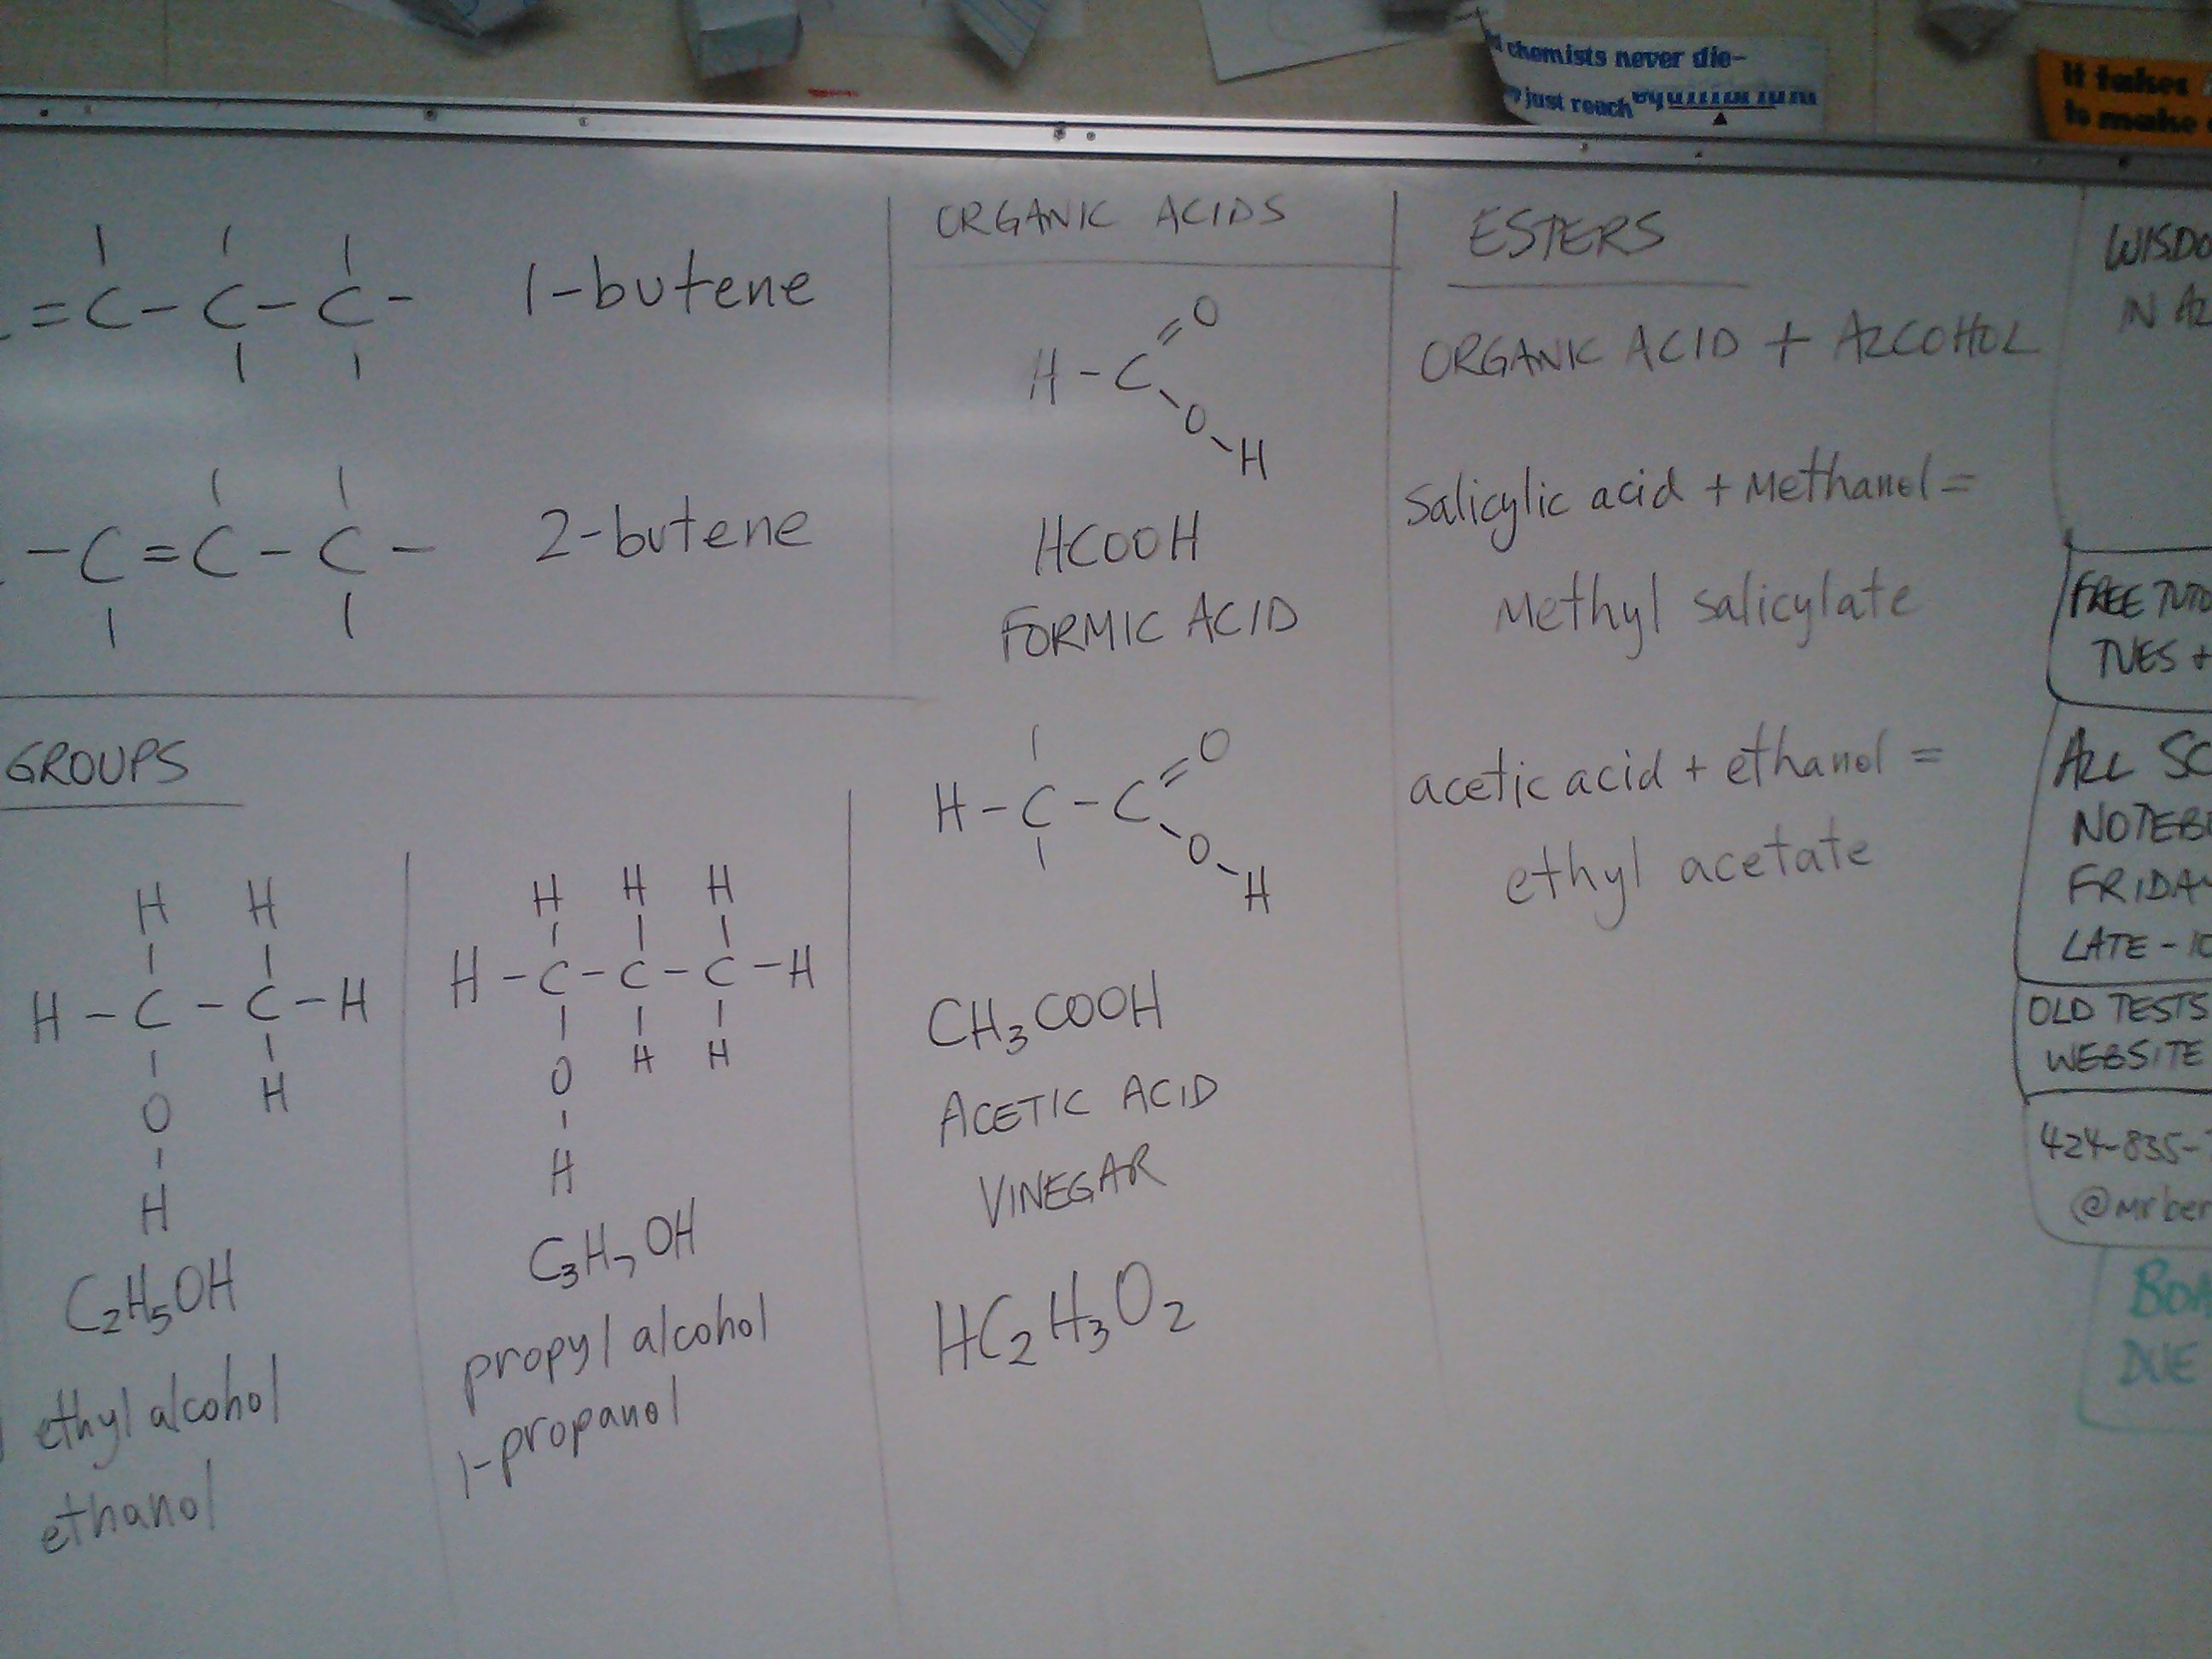 chemists never die-
just reach equilibrium
It takes
to make
= C - C - C - 1-butene
- C = C - C - 2-butene
GROUPS
H H
H - C - C - H
O H
H
C2H5OH
ethyl alcohol
ethanol
H H H
H - C - C - C - H
O H H
H
C3H7OH
propyl alcohol
1-propanol
ORGANIC ACIDS
O
H - C
O
H
HCOOH
FORMIC ACID
O
H - C - C
O
H
CH3COOH
ACETIC ACID
VINEGAR
HC2H3O2
ESTERS
ORGANIC ACID + ALCOHOL
Salicylic acid + Methanol =
Methyl salicylate
acetic acid + ethanol =
ethyl acetate
IN
FREE
TUES +
ALL
FRIDAY
LATE -
OLD TESTS
WEBSITE
424-835-
DUE